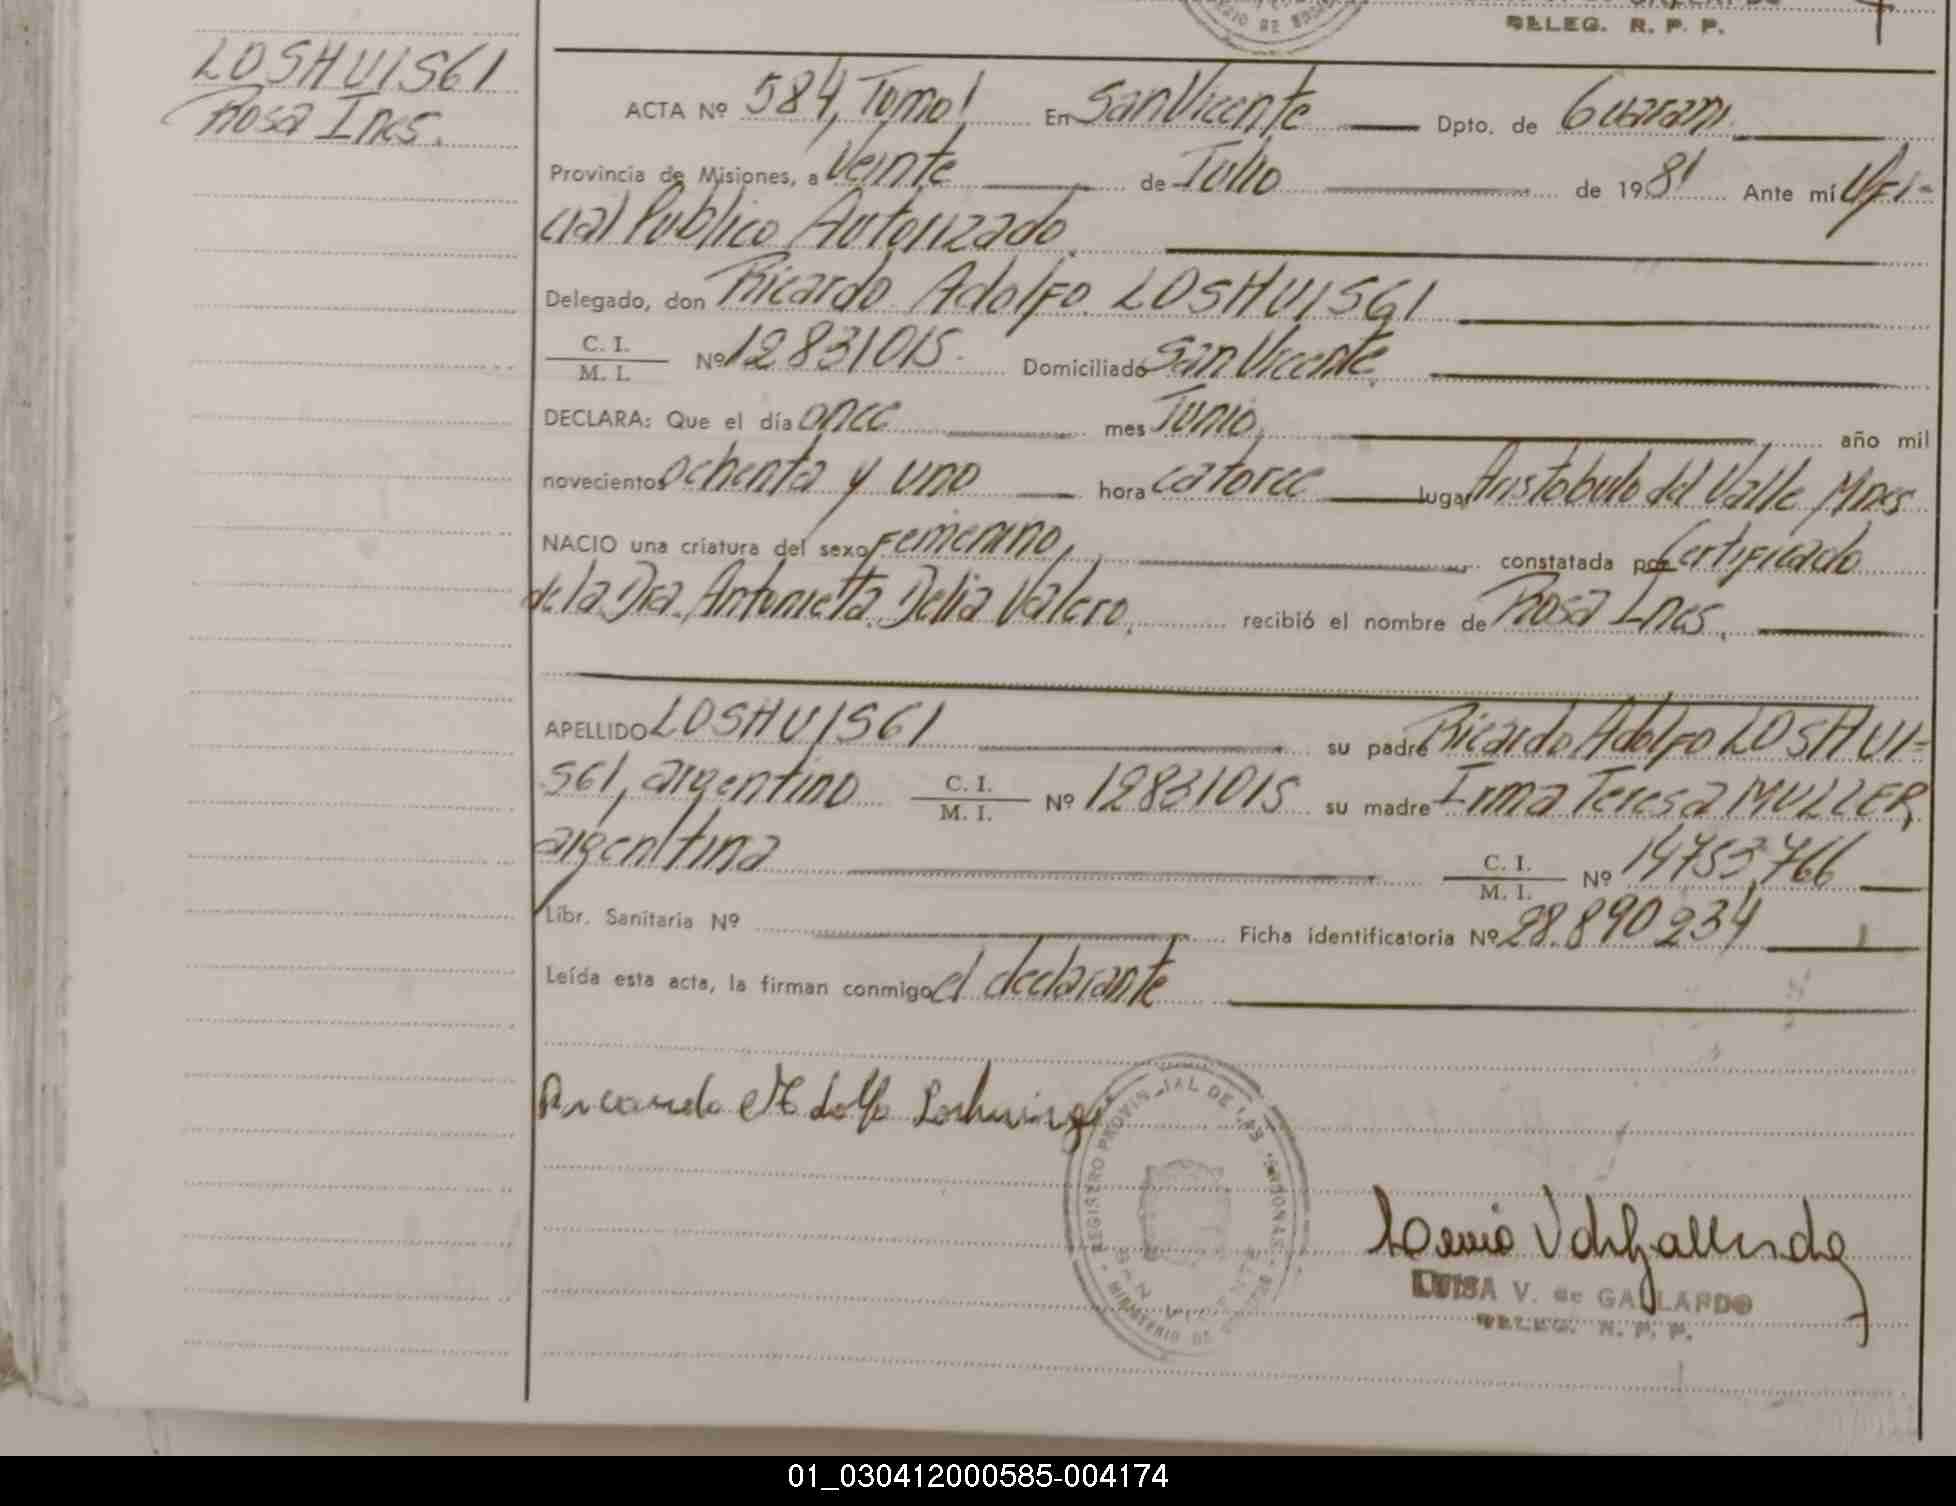 DELEG. R. P. P.
LOSHUISGI
Rosa Ines.
ACTA Nº 584, Tomo I En San Vicente Dpto. de Guarani
Provincia de Misiones, a Veinte de Julio de 1981 Ante mí Ofi-
cial Publico Autorizado
Delegado, don Ricardo Adolfo LOSHUISGI
C. I. / M. I. Nº 12831015 Domiciliado San Vicente,
DECLARA: Que el día once mes Junio, año mil
novecientos ochenta y uno hora catorce lugar Aristobulo del Valle Mnes
NACIO una criatura del sexo Femenino, constatada por Certificado
de la Dra. Antonietta Delia Valero, recibió el nombre de Rosa Ines,
APELLIDO LOSHUISGI su padre Ricardo Adolfo LOSHUI-
SGI, argentino C. I. / M. I. Nº 12831015 su madre Irma Teresa MULLER,
argentina C. I. / M. I. Nº 14753766
Libr. Sanitaria Nº Ficha identificatoria Nº 28.890234
Leída esta acta, la firman conmigo el declarante
Ricardo Adolfo
REGISTRO PROVINCIAL DE LAS PERSONAS
SAN VICENTE
MINISTERIO DE
LUISA V. de GALLARDO
DELEG. R. P. P.
01_030412000585-004174